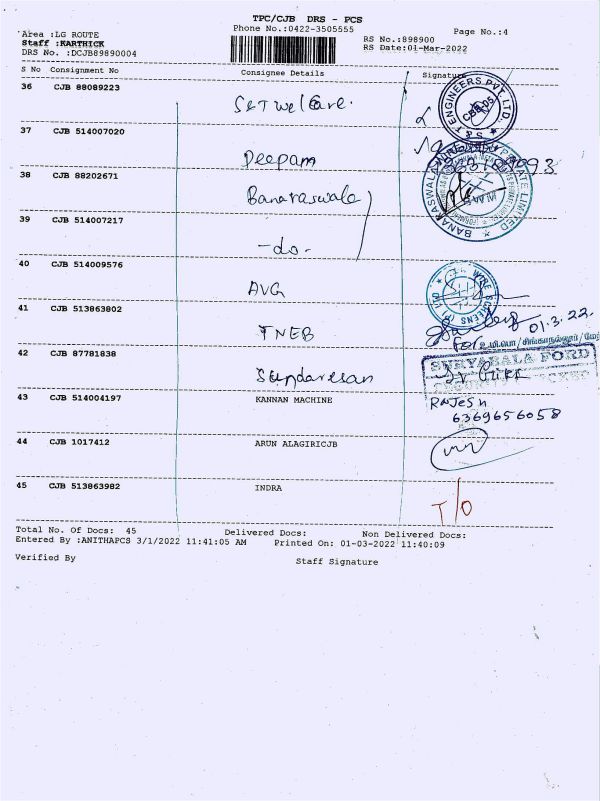 TPC/CJB DRS - PCS
Phone No.:0422-3505555
Page No.:4
Area :LG ROUTE
Staff :KARTHICK
DRS No. :DCJB89890004
RS No.:898900
RS Date:01-Mar-2022
S No Consignment No Consignee Details Signature
36 CJB 88089223 S&T Welcare.
ENGINEERS PVT. LTD.
CBE-05
37 CJB 514007020 Deepam
38 CJB 88202671 Banaraswala
BANARASWALA PRIVATE LIMITED
39 CJB 514007217 -do-
40 CJB 514009576 AVG
WIRE SCREENS (P) LTD
41 CJB 513863802 TNEB
01.3.22.
For
42 CJB 87781838 Sundaresan
SURYABALA FORD
43 CJB 514004197 KANNAN MACHINE
Rajesh
6369656058
44 CJB 1017412 ARUN ALAGIRICJB
45 CJB 513863982 INDRA T/O
Total No. Of Docs: 45 Delivered Docs: Non Delivered Docs:
Entered By :ANITHAPCS 3/1/2022 11:41:05 AM Printed On: 01-03-2022 11:40:09
Verified By Staff Signature